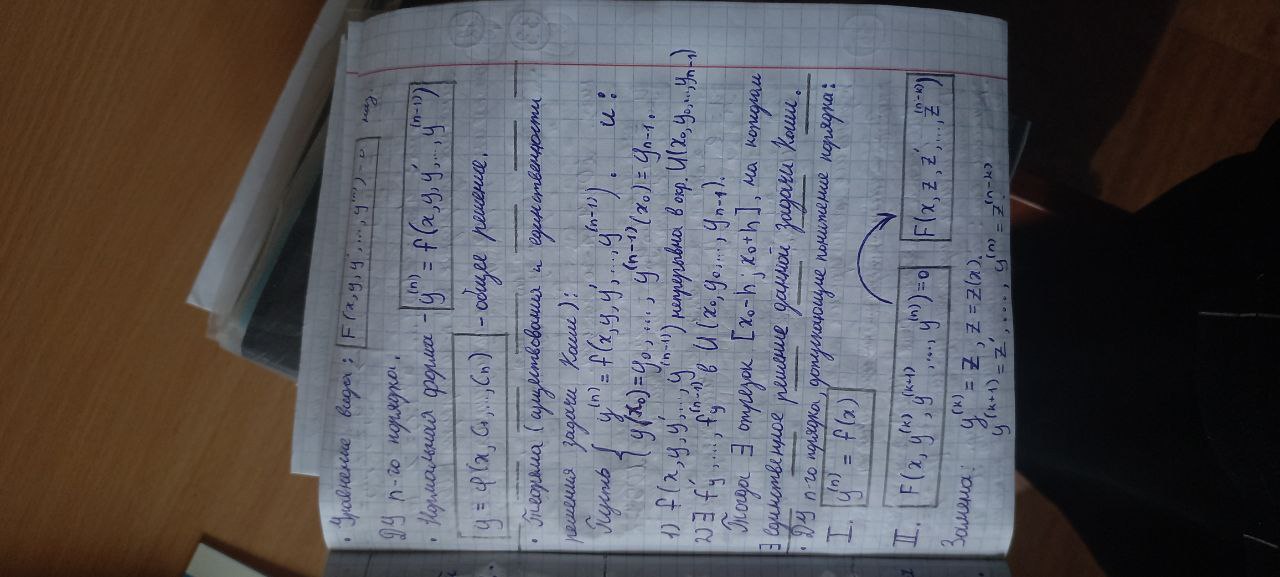 • Уравнение вида: F(x, y, y', ..., y⁽ⁿ⁾) = 0 наз.
ДУ n-го порядка.
• Нормальная форма - y⁽ⁿ⁾ = f(x, y, y', ..., y⁽ⁿ⁻¹⁾)
y = φ(x, C₁, ..., Cₙ) - общее решение.
• Теорема (существования и единственности
решения задачи Коши):
Пусть { y⁽ⁿ⁾ = f(x, y, y', ..., y⁽ⁿ⁻¹⁾). и:
y(x₀) = y₀, ..., y⁽ⁿ⁻¹⁾(x₀) = yₙ₋₁.
1) f(x, y, y', ..., y⁽ⁿ⁻¹⁾) непрерывна в окр. U(x₀, y₀, ..., yₙ₋₁)
2) ∃ f'y, ..., f'y⁽ⁿ⁻¹⁾ в U(x₀, y₀, ..., yₙ₋₁).
Тогда ∃ отрезок [x₀-h; x₀+h], на котором
∃ единственное решение данной задачи Коши.
• ДУ n-го порядка, допускающие понижение порядка:
I. y⁽ⁿ⁾ = f(x)
II. F(x, y⁽ᵏ⁾, y⁽ᵏ⁺¹⁾, ..., y⁽ⁿ⁾) = 0 F(x, z, z', ..., z⁽ⁿ⁻ᵏ⁾)
Замена: y⁽ᵏ⁾ = z, z = z(x).
y⁽ᵏ⁺¹⁾ = z', ..., y⁽ⁿ⁾ = z⁽ⁿ⁻ᵏ⁾.